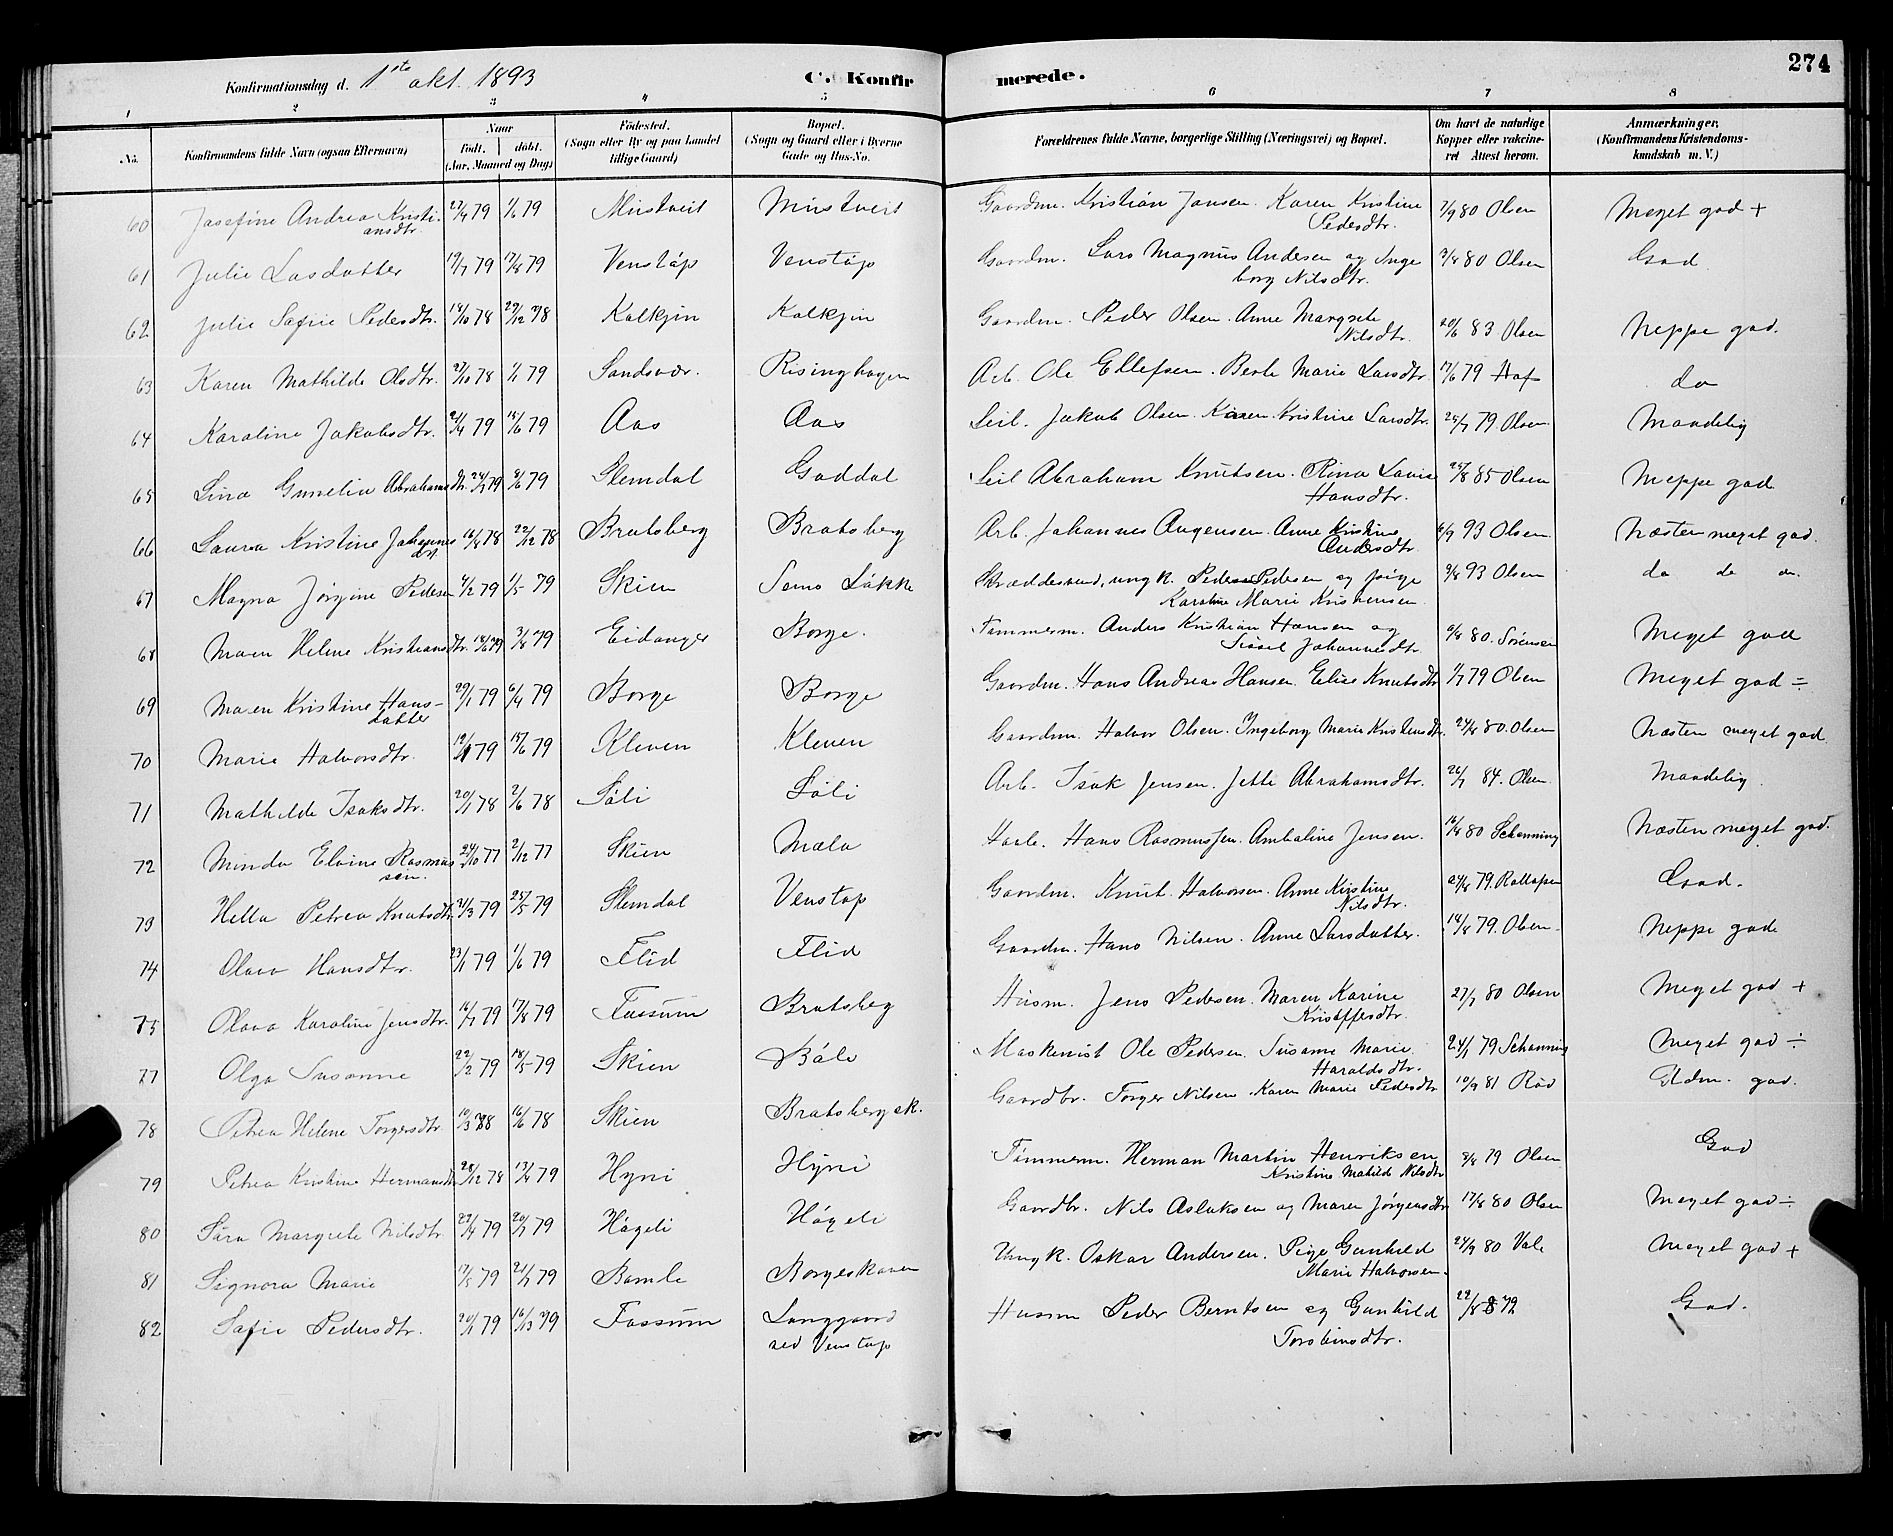 274
Konfirmationsdag d. 1ste okt. 1893 C. Konfirmerede.
1 2 3 4 5 6 7 8
No. Konfirmandens fulde Navn (ogsaa Efternavn) Naar Født. døbt. (Aar, Maaned og Dag) Fødested. (Sogn eller By og paa Landet tillige Gaard) Bopæl. (Sogn og Gaard eller i Byerne Gade og Hus-No. Forældrenes fulde Navne, borgerlige Stilling (Næringsvei) og Bopæl. Om havt de naturlige Kopper eller vakcineret Attest herom. Anmærkninger, (Konfirmandens Kristendomskundskab m. V.)
60 Josefine Andrea Kristiansdtr. 27/4 79 1/6 79 Mustveit Mustveit Gaardm. Kristian Jansen. Karen Kristine Pedersdtr. 7/9 80 Olsen Meget god +
61 Julie Lasdatter 19/7 79 17/8 79 Venstøp Venstøp Gaardm. Lars Magnus Andersen og Ingeborg Nilsdtr. 3/8 80 Olsen God
62 Julie Sofie Pedersdtr. 18/10 78 29/12 78 Kolkjin Kolkjin Gaardm. Peder Olsen. Anne Margrete Nilsdtr. 20/6 83 Olsen Neppe god.
63 Karen Mathilde Olsdtr. 27/10 78 1/1 79 Sandsvær. Risinghagen Arb. Ole Ellefsen. Berte Marie Larsdtr. 17/6 79 Hof do
64 Karoline Jakobsdtr. 21/4 79 15/6 79 Aas Aas Leil. Jakob Olsen. Karen Kristine Larsdtr. 25/7 79 Olsen Maadelig
65 Lina Gunelia Abrahamsdtr. 24/1 79 8/6 79 Slemdal Goddal Leil Abraham Knutsen. Rina Lovise Hansdtr. 25/8 85 Olsen Neppe god
66 Laura Kristine Johannesdtr 16/8 78 22/12 78 Bratsberg Bratsberg Arb. Johannes Augensen. Anne Kristine Andersdtr. 6/9 93 Olsen Næsten meget god.
67 Magna Jørgine Pedersen 4/2 79 1/5 79 Skien Løkke Skræddersvend, ungk. Peder Pedersen og pige Karoline Marie Kristensen 9/8 93 Olsen do do do.
68 Maren Helene Kristiansdtr. 18/6 79 3/8 79 Eidanger Borge. Tømmerm. Anders Kristian Hansen og Sissel Johannesdtr. 6/8 80. Sørensen Meget god
69 Maren Kristine Hansdatter 29/1 79 6/4 79 Borge Borge Gaardm. Hans Andreas Hansen. Elise Knutsdtr 1/7 79 Olsen Meget god ÷
70 Marie Halvorsdtr. 19/1 79 15/6 79 Kleven Kleven Gaardm. Halvor Olsen. Ingeborg Marie Kristensdtr. 24/8 80. Olsen Næsten meget god
71 Mathilde Isaksdtr. 20/1 78 2/6 78 Løli Løli Arb. Isak Jensen. Jette Abrahamsdtr. 26/7 84. Olsen Maadelig
72 Minda Elvine Rasmussen. 24/10 77 2/12 77 Skien Mæla Hans Rasmussen. Ambaline Jensen. 16/8 80 Schanning Næsten meget god.
73 Hella Petrea Knutsdtr. 21/3 79 25/5 79 Slemdal Venstøp Gaardm. Knut Halvorsen. Anne Kirstine Nilsdtr. 24/8 79. God.
74 Olava Hansdtr. 23/1 79 1/6 79 Flid Flid Gaardm. Hans Nilsen. Anne Larsdatter. 14/8 79. Olsen Neppe god
75 Olava Karoline Jensdtr. 16/7 79 17/8 79 Fossum Bratsberg Husm. Jens Pedersen. Maren Karine Kristoffersdtr. 27/7 80 Olsen Meget god +
77 Olga Susanne 22/2 79 18/5 79 Skien Bøle Maskenist Ole Pedersen. Susanne Marie Haraldsdtr. 24/1 79 Schanning Meget god ÷
78 Petrea Helene Torgersdtr 10/3 78 16/6 78 Skien Bratsbergek. Gaardbr. Torger Nilsen. Karen Marie Pedersdtr 10/9 81 Rød Udm. god.
79 Petrea Kristine Hermansdtr 28/12 78 13/4 79 Hyni Hyni Tømmerm. Herman Martin Henriksen. Kristine Matilde Nilsdtr 8/8 79 Olsen God
80 Sara Margrete Nilsdtr. 29/4 79 20/7 79 Høgeli Høgeli Gaardbr. Nils Aslaksen og Maren Jørgensdtr 17/8 80 Olsen Meget god ÷
81 Signora Marie 17/5 79 21/7 79 Bamle Borgeskoven Ungk. Oskar Andersen. Pige Gunhild Marie Halvorsen. 24/9 80 Vale Meget god +
82 Sofie Pedersdtr. 20/1 79 16/3 79 Fossum Langgaard ved Venstøp Husm Peder Berntsen og Gunhild Torstensdtr. 22/8 79 God.